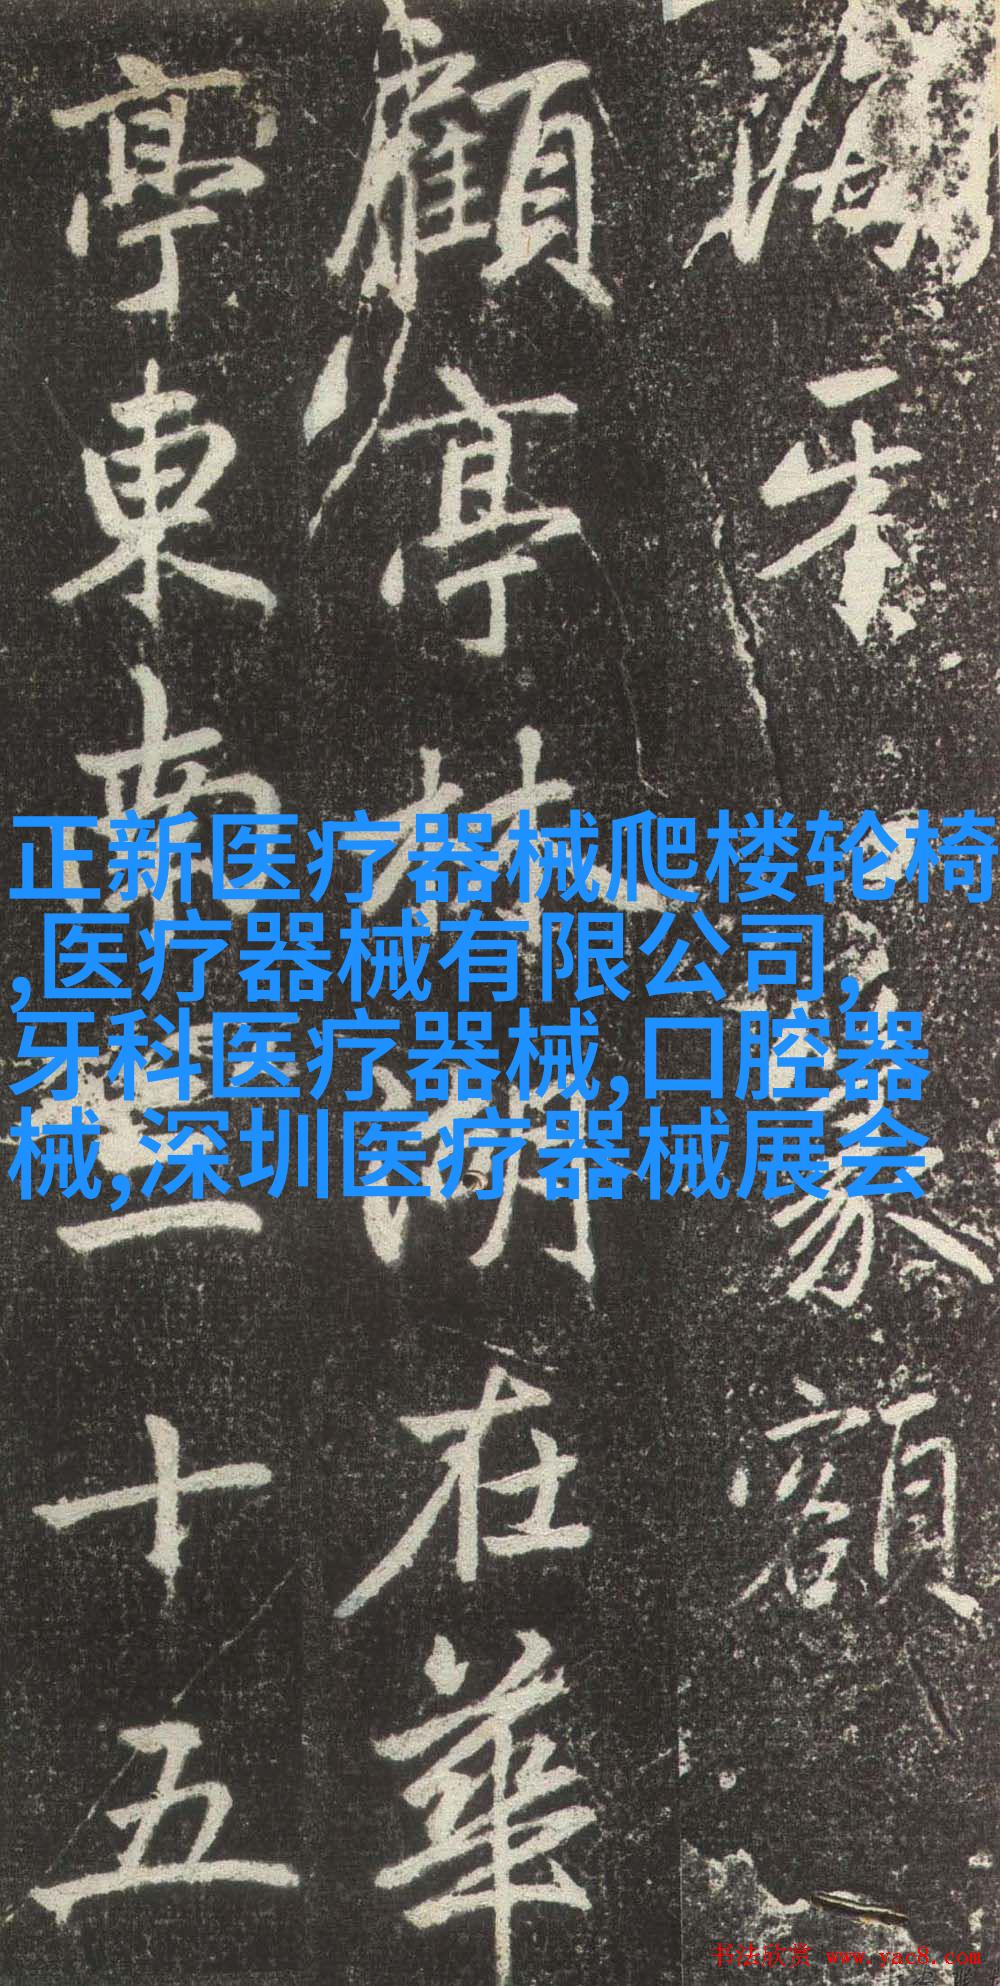 顧亭林湖在華
亭東南三十五
篆額
正新医疗器械爬楼轮椅
,医疗器械有限公司,
牙科医疗器械,口腔器
械,深圳医疗器械展会
书法欣赏 www.yac8.com